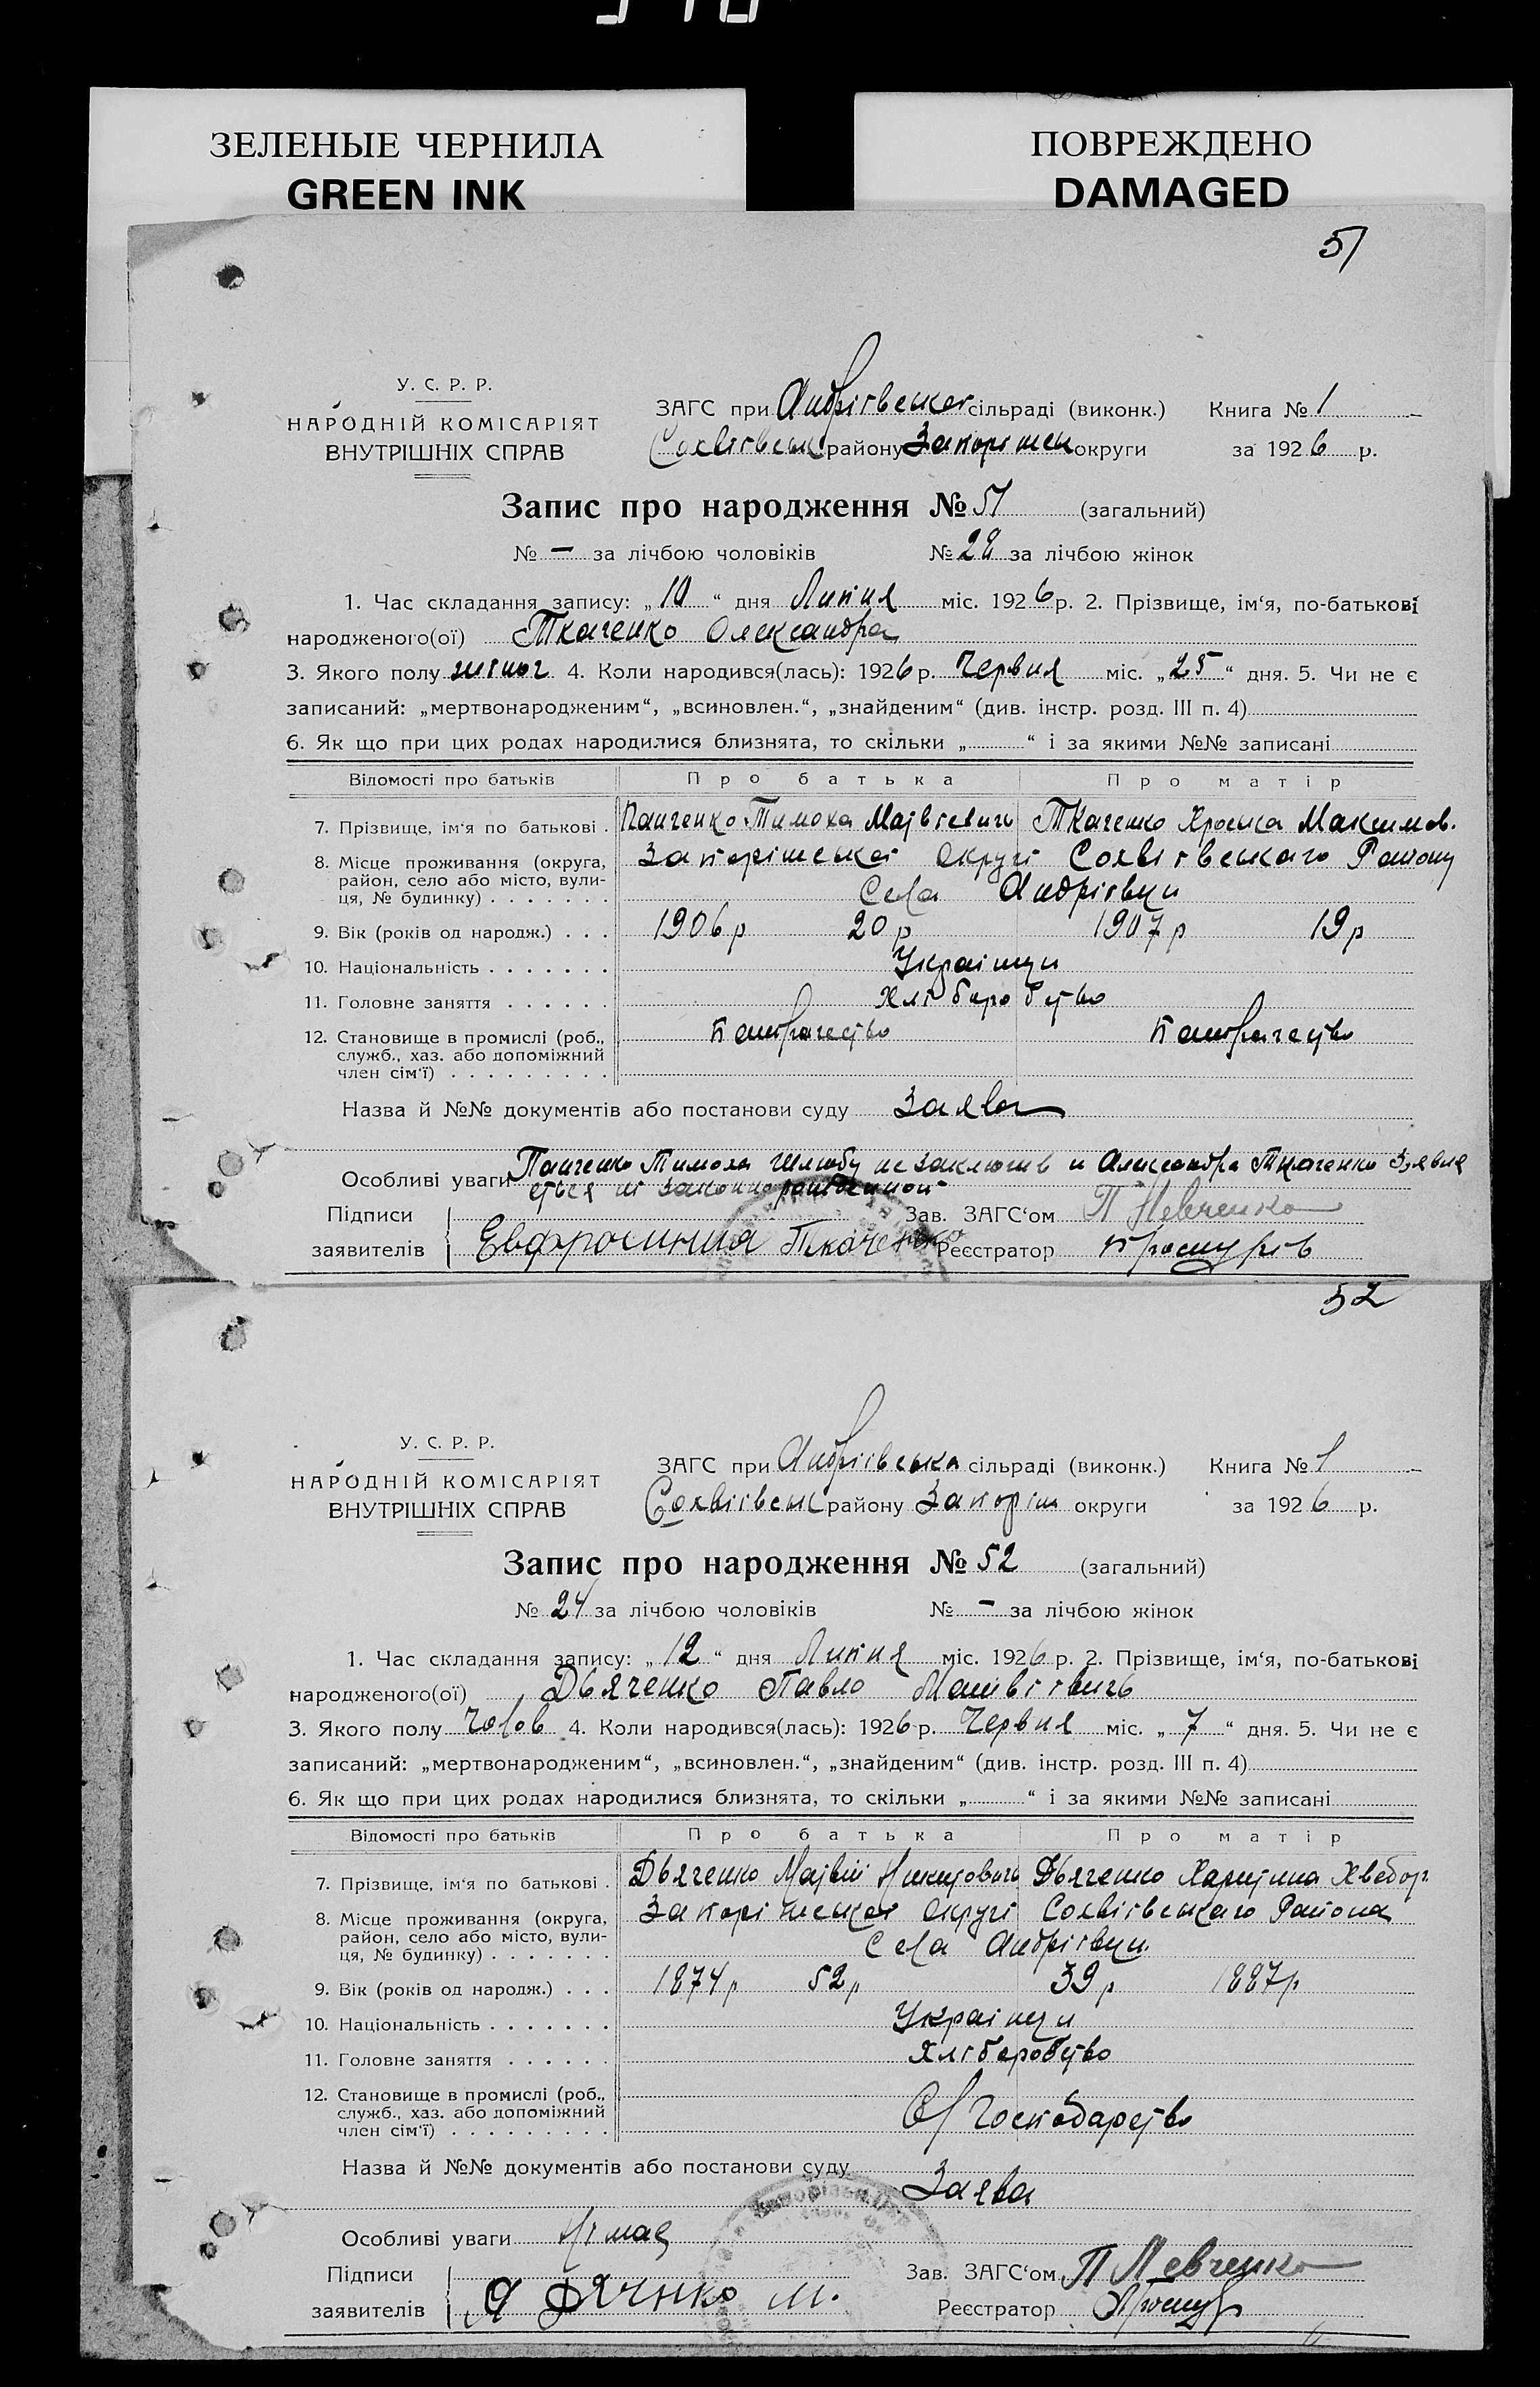 ЗЕЛЕНЫЕ ЧЕРНИЛА
GREEN INK
ПОВРЕЖДЕНО
DAMAGED
51
У. С. Р. Р.
НАРОДНІЙ КОМІСАРІЯТ
ВНУТРІШНІХ СПРАВ
ЗАГС при Андріівській сільраді (виконк.) Книга № 1
Софіівськ району Запоріжськ округи за 1926 р.
Запис про народження № 51 (загальний)
№ — за лічбою чоловіків № 28 за лічбою жінок
1. Час складання запису: „10“ дня Липня міс. 1926 р. 2. Прізвище, ім‘я, по-батькові
народженого(ої) Ткаченко Олександра
3. Якого полу жіноч 4. Коли народився(лась): 1926 р. Червня міс. „25“ дня. 5. Чи не є
записаний: „мертвонародженим“, „всиновлен.“, „знайденим“ (див. інстр. розд. III п. 4)
6. Як що при цих родах народилися близнята, то скільки „ “ і за якими №№ записані
Відомості про батьків Про батька Про матір
7. Прізвище, ім‘я по батькові . Панченко Тимоха Матвієвичь Ткаченко Хроська Максимов.
8. Місце проживання (округа, район, село або місто, вулиця, № будинку) Запоріжськоі Округі Софіівського Раиону
Села Андріівки
9. Вік (років од народж.) . . . 1906 р 20 р 1907 р 19 р
10. Національність Украінци
11. Головне заняття Хліборобство
12. Становище в промислі (роб., служб., хаз. або допоміжний член сім‘ї) батрачество батрачество
Назва й №№ документів або постанови суду Заява
Особливі уваги Панченко Тимоха Шлюбу не заключив и Александра Ткаченко Зьявля
еться не законнорожденной
Підписи
заявителів
Евфросиния Ткаченко
Зав. ЗАГС‘ом П Левченко
Реєстратор
52
У. С. Р. Р.
НАРОДНІЙ КОМІСАРІЯТ
ВНУТРІШНІХ СПРАВ
ЗАГС при Андріівська сільраді (виконк.) Книга № 1
Софіівськ району Запоріж округи за 1926 р.
Запис про народження № 52 (загальний)
№ 24 за лічбою чоловіків № — за лічбою жінок
1. Час складання запису: „12“ дня Липня міс. 1926 р. 2. Прізвище, ім‘я, по-батькові
народженого(ої) Дьяченко Павло Матвіівичь
3. Якого полу Чолов 4. Коли народився(лась): 1926 р. Червня міс. „7“ дня. 5. Чи не є
записаний: „мертвонародженим“, „всиновлен.“, „знайденим“ (див. інстр. розд. III п. 4)
6. Як що при цих родах народилися близнята, то скільки „ “ і за якими №№ записані
Відомості про батьків Про батька Про матір
7. Прізвище, ім‘я по батькові . Дьяченко Матвій Никитовичь Дьяченко Харитина Хведор.
8. Місце проживання (округа, район, село або місто, вулиця, № будинку) Запоріжськоі Округі Софіівського Раиона
Села Андріівки
9. Вік (років од народж.) . . . 1874 р 52 р 39 р 1887 р
10. Національність Украінци
11. Головне заняття Хліборобство
12. Становище в промислі (роб., служб., хаз. або допоміжний член сім‘ї) Господарство
Назва й №№ документів або постанови суду Заява
Особливі уваги Німає
Підписи
заявителів
Я Дячнко М.
Зав. ЗАГС‘ом П Левченко
Реєстратор